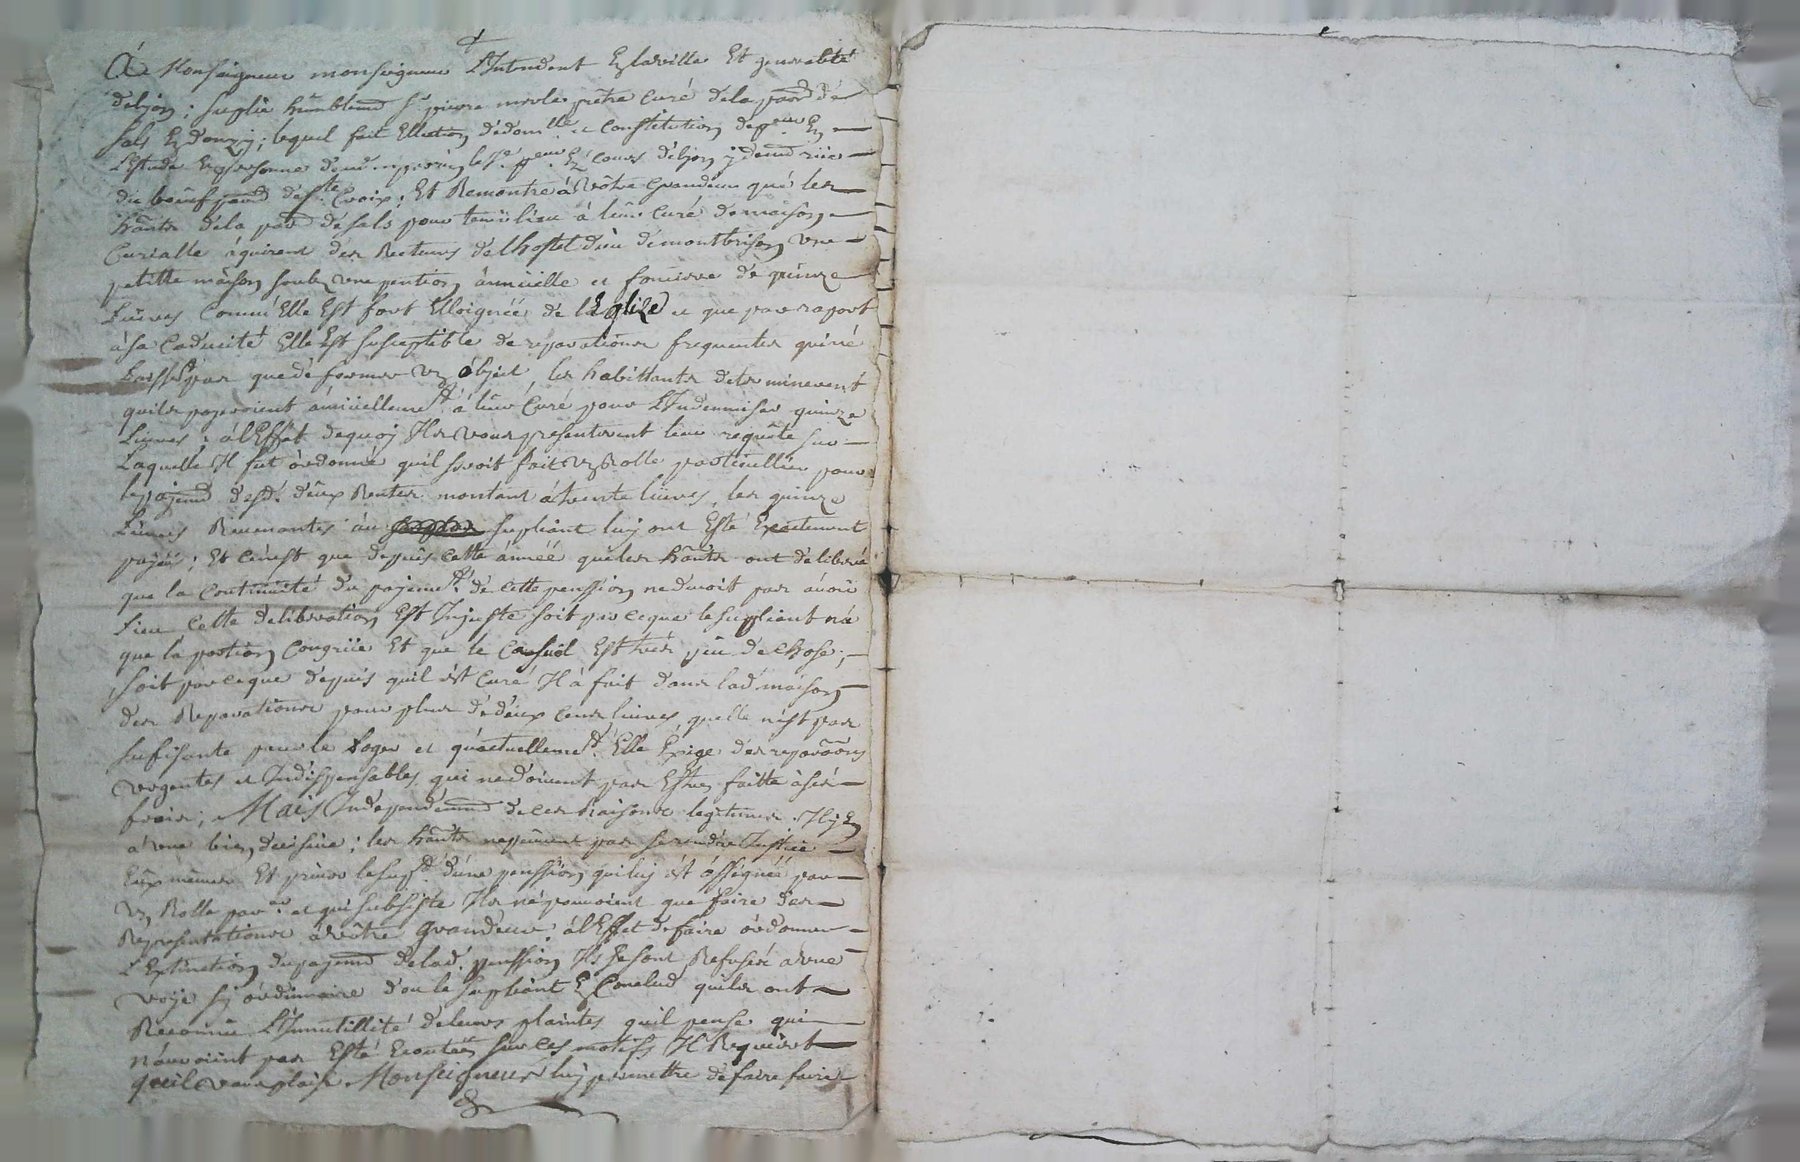 A Monseigneur monseigneur L'Intendent En la ville Et generalité
de lyon; suplie humblemt Sr pierre merle prêtre curé de la parr de
sals En donzy; lequel fait Ellection de domlle et Constitution de pcur En
L'Estude En personne de
du boeuf parr de Ste Croix; Et Remontre à Vôtre Grandeur que les
hâнts de la parr de sals pour tenir lieu à leur Curé de maison
Curialle aquirent des Recteurs de l'hostel dieu de montbrison une
petitte maison soubz une pention annüelle et fonciere de quinze
Liûres Comm'Elle Est fort Elloignée de l'Eglize et que par raport
à sa Caducité Elle Est susceptible de reparations frequentes qui ne
Laisse pas que de former un objet, les habittants determinerent
quils payeroient annüellemt à leur Curé pour L'Indemniser quinze
Liures; à l'Effet dequoy Ils vous presenterent leur requête sur
Laquelle Il fut ordonné quil seroit fait un Rolle particullier pour
le payemt desd. deux Rentes montant à trente liures, les quinze
Liures Reuenantes au supliant luy ont Esté Exactement
payées; Et ce n'est que depuis cette année que les hants ont deliberé
que la Continuité du payemt de cette penssion ne deuoit pas auoir
Lieu Cette deliberation Est Injuste soit par ce que le supliant n'a
que la portion Congrüe Et que le Casuel Est tres peu de chose;
soit par ce que depuis quil est Curé Il a fait dans lad maison
des Reparations pour plus de deux cens liures, quelle n'est pas
sufisante pour le Loger et qu'actuellemt Elle Exige des reparãons
urgentes et Indispensables qui ne doiuent pas Estre faitte à ses
frais; Mais Independemmt de ces Raisons legitimes Il y En
à une bien decisiue; les hants ne peuuent pas se rendre Justice
Eux mêmes Et priuer le supt d'une penssion qui luy est assignée par
un Rolle parer et qui subsiste Ils ne pouuoient que faire des
Representations à vôtre Grandeur à l'Effet de faire ordonner
L'Extinction du payemt de lad. penssion Ils se sont Refusés à une
voye sy ordinaire d'ou le supliant En Conclud quils ont
Reconnu L'Innutillité de leurs plaintes quil pense qui
n'auroient pas Esté Ecoutées sur ces motifs Il Requiert
quil vous plaise Monseigneur luy permettre de faire faire